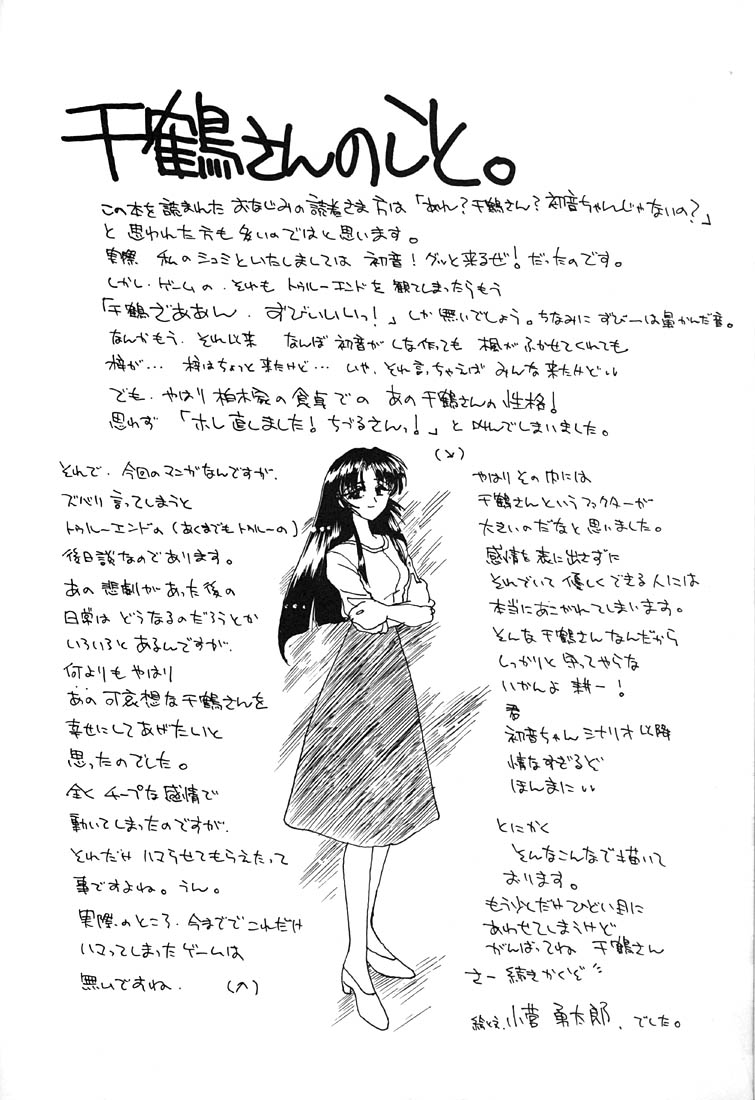 千鶴さんのこと。
この本を読まれた おなじみの読者さま方は「あれ？千鶴さん？初音ちゃんじゃないの？」
と思われた方も多いのではと思います。
実際 私のシュミといたしましては 初音！グッと来るぜ！だったのです。
しかし、ゲームの、それも トゥルーエンドを観てしまったらもう
「千鶴ざああん、ずびいいいっ！」しか無いでしょう。ちなみに ずびーは鼻かんだ音。
なんかもう、それ以来 なんぼ初音がしな作っても 楓がふかせてくれても
梓が… 梓はちょっと来たけど… いや、それ言っちゃえば みんな来たけどいい
でも、やはり柏木家の食卓での あの千鶴さんの性格！
思わず 「ホレ直しました！ちづるさんっ！」と叫んでしまいました。
それで、今回のマンガなんですが、
ズバリ言ってしまうと
トゥルーエンドの（あくまでもトゥルーの）
後日談なのであります。
あの悲劇があった後の
日常は どうなるのだろうとか
いろいろと あるんですが、
何よりも やはり
あの可哀想な千鶴さんを
幸せにしてあげたいと
思ったのでした。
全く チープな感情で
動いてしまったのですが、
それだけ ハマらせてもらえたって
事ですよね。うん。
実際のところ、今まででこれだけ
ハマってしまったゲームは
無いですね。 （へ）
（と）
やはりその中には
千鶴さんというファクターが
大きいのだなと思いました。
感情を表に出さずに
それでいて 優しくできる人には
本当にあこがれてしまいます。
そんな千鶴さんなんだから
しっかりと守ってやらな
いかんよ 耕一！
君
初音ちゃんシナリオ以降
情なすぎるど
ほんまに
とにかく
そんなこんなで描いて
おります。
もう少しだけひどい目に
あわせてしまうけど
がんばってね 千鶴さん
さー続きかくぞ
絵と文、小菅 勇太郎、でした。